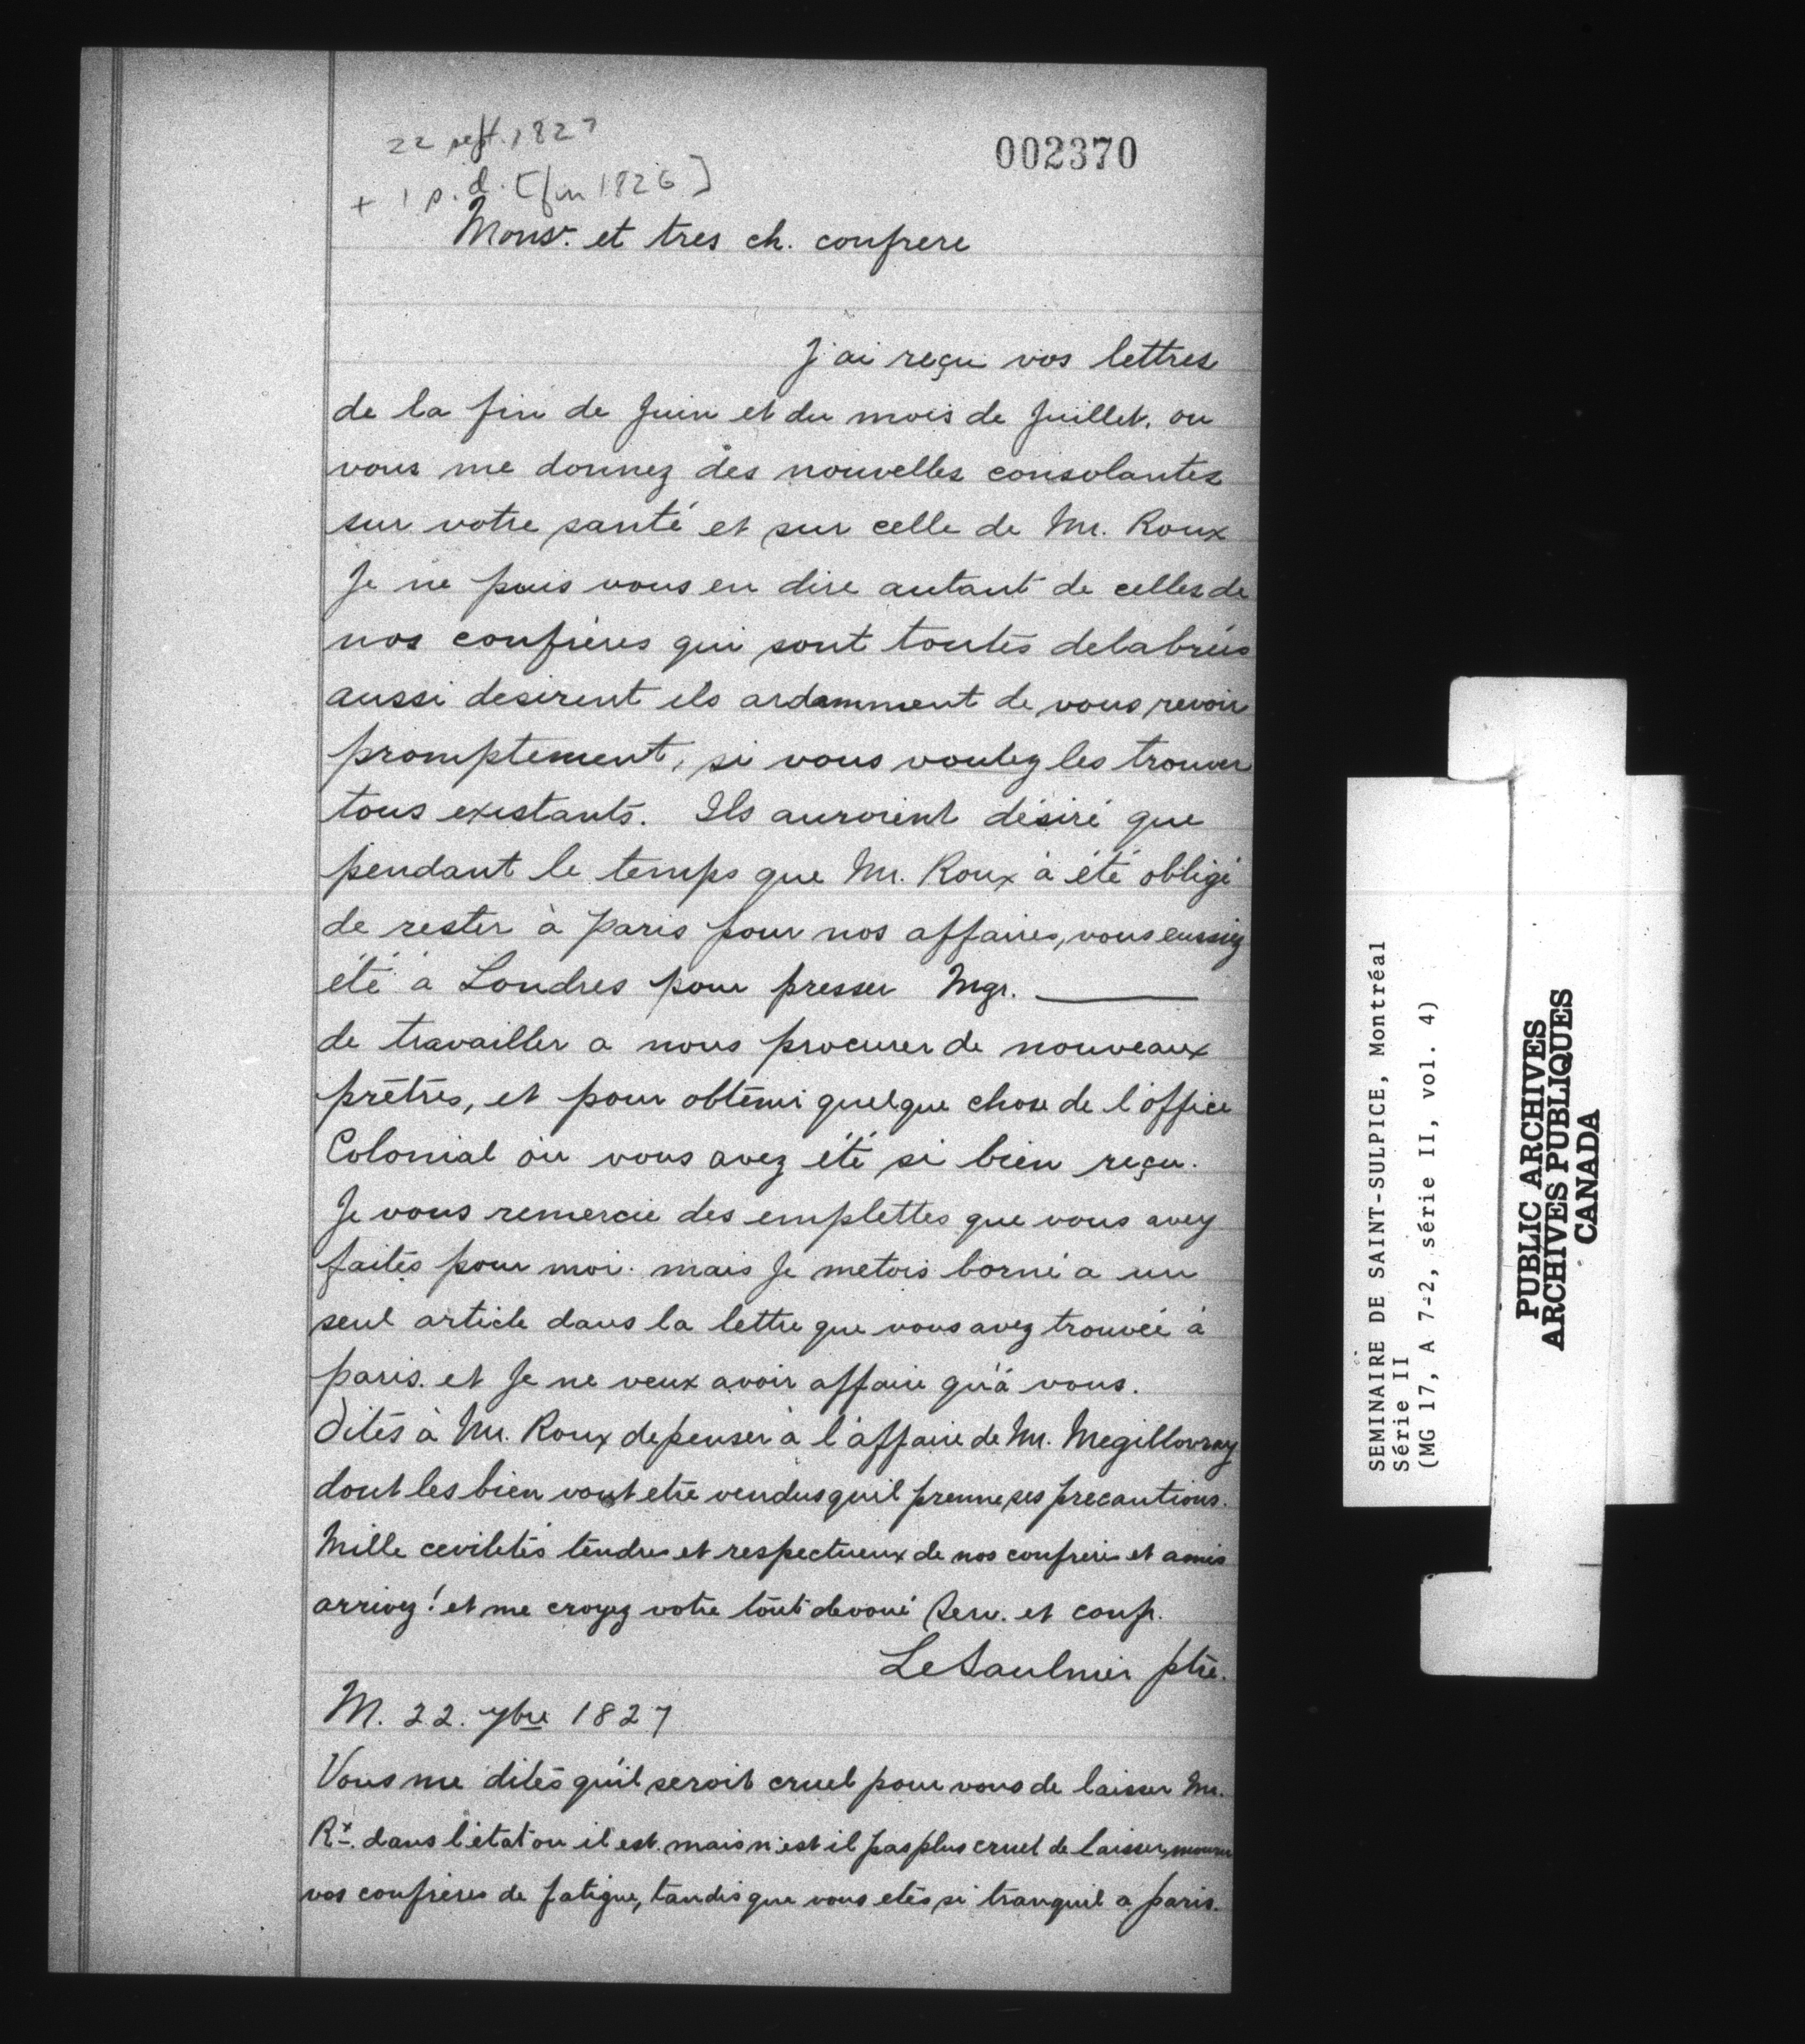 22 sept. 1827
+ 1 p. d. [fin 1826]
002370
Monsr. et tres ch. confrere
J'ai reçu vos lettres
de la fin de Juin et du mois de Juillet. ou
vous me donnez des nouvelles consolantes
sur votre santé et sur celle de Mr. Roux
Je ne puis vous en dire autant de celles de
nos confrères qui sont toutes delabrées
aussi desirent ils ardamment de vous revoir
promptement, si vous voulez les trouver
tous existants. Ils auroient désiré que
pendant le temps que Mr. Roux à été obligé
de rester à Paris pour nos affaires, vous eussiez
été a Londres pour presser Mgr. ______
de travailler a nous procurer de nouveaux
prêtres, et pour obtenir quelque chose de l'office
Colonial où vous avez été si bien reçu.
Je vous remercie des emplettes que vous avez
faites pour moi. mais Je metois borné a un
seul article dans la lettre que vous avez trouvée à
paris. et Je ne veux avoir affaire qu'à vous.
Dites à Mr. Roux de penser à l'affaire de Mr. Megillovray
dont les bien vont etre vendus quil prenne ses precautions.
Mille civilités tendres et respectueux de nos confreres et amis
arrivez! et me croyez votre tout devoué Serv. et confr.
LeSaulnier ptre.
M. 22. 7bre 1827
Vous me dites qu'il seroit cruel pour vous de laisser Mr.
Rx. dans l'état ou il est. mais n'est il pas plus cruel de laisser mourir
vos confrères de fatigue, tandis que vous etes si tranquil a paris.
SEMINAIRE DE SAINT-SULPICE, Montréal
Série II
(MG 17, A 7-2, série II, vol. 4)
PUBLIC ARCHIVES
ARCHIVES PUBLIQUES
CANADA